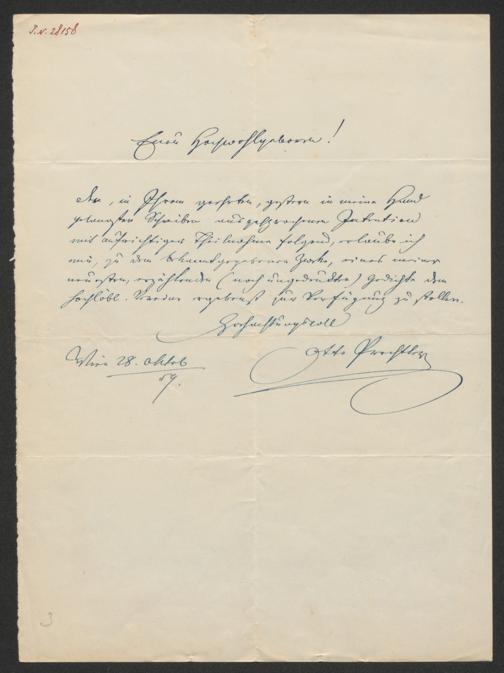 I.N. 28158
Euer Hochwohlgeboren!
Der, in Ihrem geehrten, gestern in meine Hand
gelangten Schreiben ausgesprochenen Intention
mit aufrichtiger Theilnahme folgend, erlaube ich
mir, zu dem bekanntgegebenen Zwecke, eines meiner
neuesten, erzählenden (noch ungedruckte) Gedichte dem
hochlöbl. Vereine ergebenst zur Verfügung zu stellen.
Hochachtungsvoll
Otto Prechtler
Wien 28. Oktob
59.
3